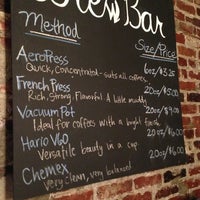 Brew Bar
Method Size/Price
AeroPress 6oz/$3.25
Quick, Concentrated - suits all coffees
French Press 20oz/$
Rich, Strong, Flavorful & a little muddy
Vacuum Pot 20oz/$9.00
Ideal for coffees with a bright finish
Hario V60 20oz/$6.00
Versatile beauty in a cup
Chemex 20oz/$
very clean, very balanced